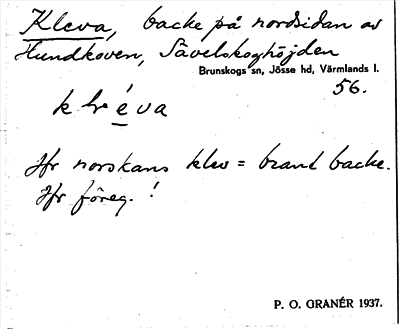 Kleva, backe på nordsidan av
Hundkoven, Sävelskoghöjden
Brunskogs sn, Jösse hd, Värmlands l.
56.
klèva
Jfr norskans klev = brant backe.
Jfr föreg.!
P. O. GRANÉR 1937.